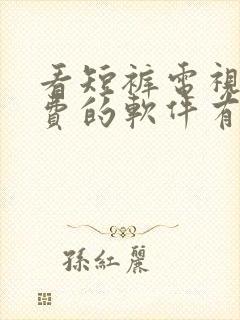 看短裤電視
費的軟件有
孫紅麗